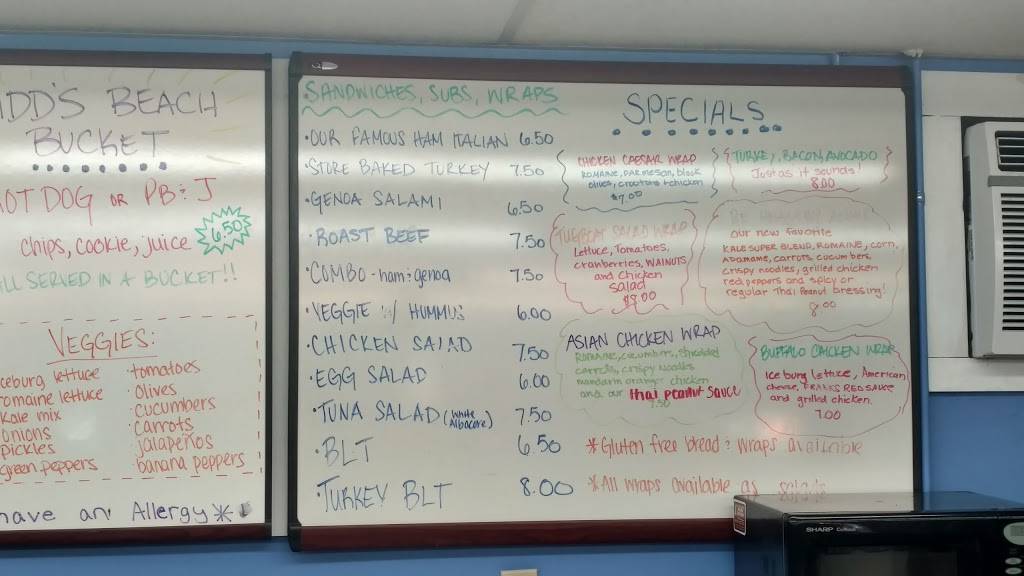 ADD'S BEACH
BUCKET
HOT DOG OR PB & J
chips, cookie, juice 6.50
ALL SERVED IN A BUCKET!!
VEGGIES:
iceburg lettuce
romaine lettuce
Kale mix
onions
Pickles
green peppers
tomatoes
Olives
cucumbers
carrots
jalapeños
banana peppers
have an Allergy *
SANDWICHES, SUBS, WRAPS
•OUR FAMOUS HAM ITALIAN 6.50
•STORE BAKED TURKEY 7.50
•GENOA SALAMI 6.50
•ROAST BEEF 7.50
•COMBO - ham & genoa 7.50
•VEGGIE w/ HUMMUS 6.00
•CHICKEN SALAD 7.50
•EGG SALAD 6.00
•TUNA SALAD (White Albacore) 7.50
•BLT 6.50
•TURKEY BLT 8.00
SPECIALS
CHICKEN CAESAR WRAP
ROMAINE, PARMESAN, black
olives, croutons & chicken
$7.00
TURKEY, BACON, AVOCADO
Just as it sounds!
8.00
TUGBOAT SALAD WRAP
Lettuce, Tomatoes,
cranberries, WALNUTS
and Chicken
Salad
$8.00
our new favorite
KALE SUPER BLEND, ROMAINE, corn,
ADAMAME, carrots, cucumbers,
crispy noodles, grilled chicken
red peppers and spicy or
regular Thai Peanut Dressing!
8.00
ASIAN CHICKEN WRAP
ROMAINE, cucumbers, shredded
carrots, crispy noodles
mandarin oranges chicken
and our thai peanut sauce
7.50
BUFFALO CHICKEN WRAP
Ice burg lettuce, American
cheese, FRANKS RED SAUCE
and grilled chicken.
7.00
*Gluten free bread & wraps available
*All wraps available as salads
SHARP